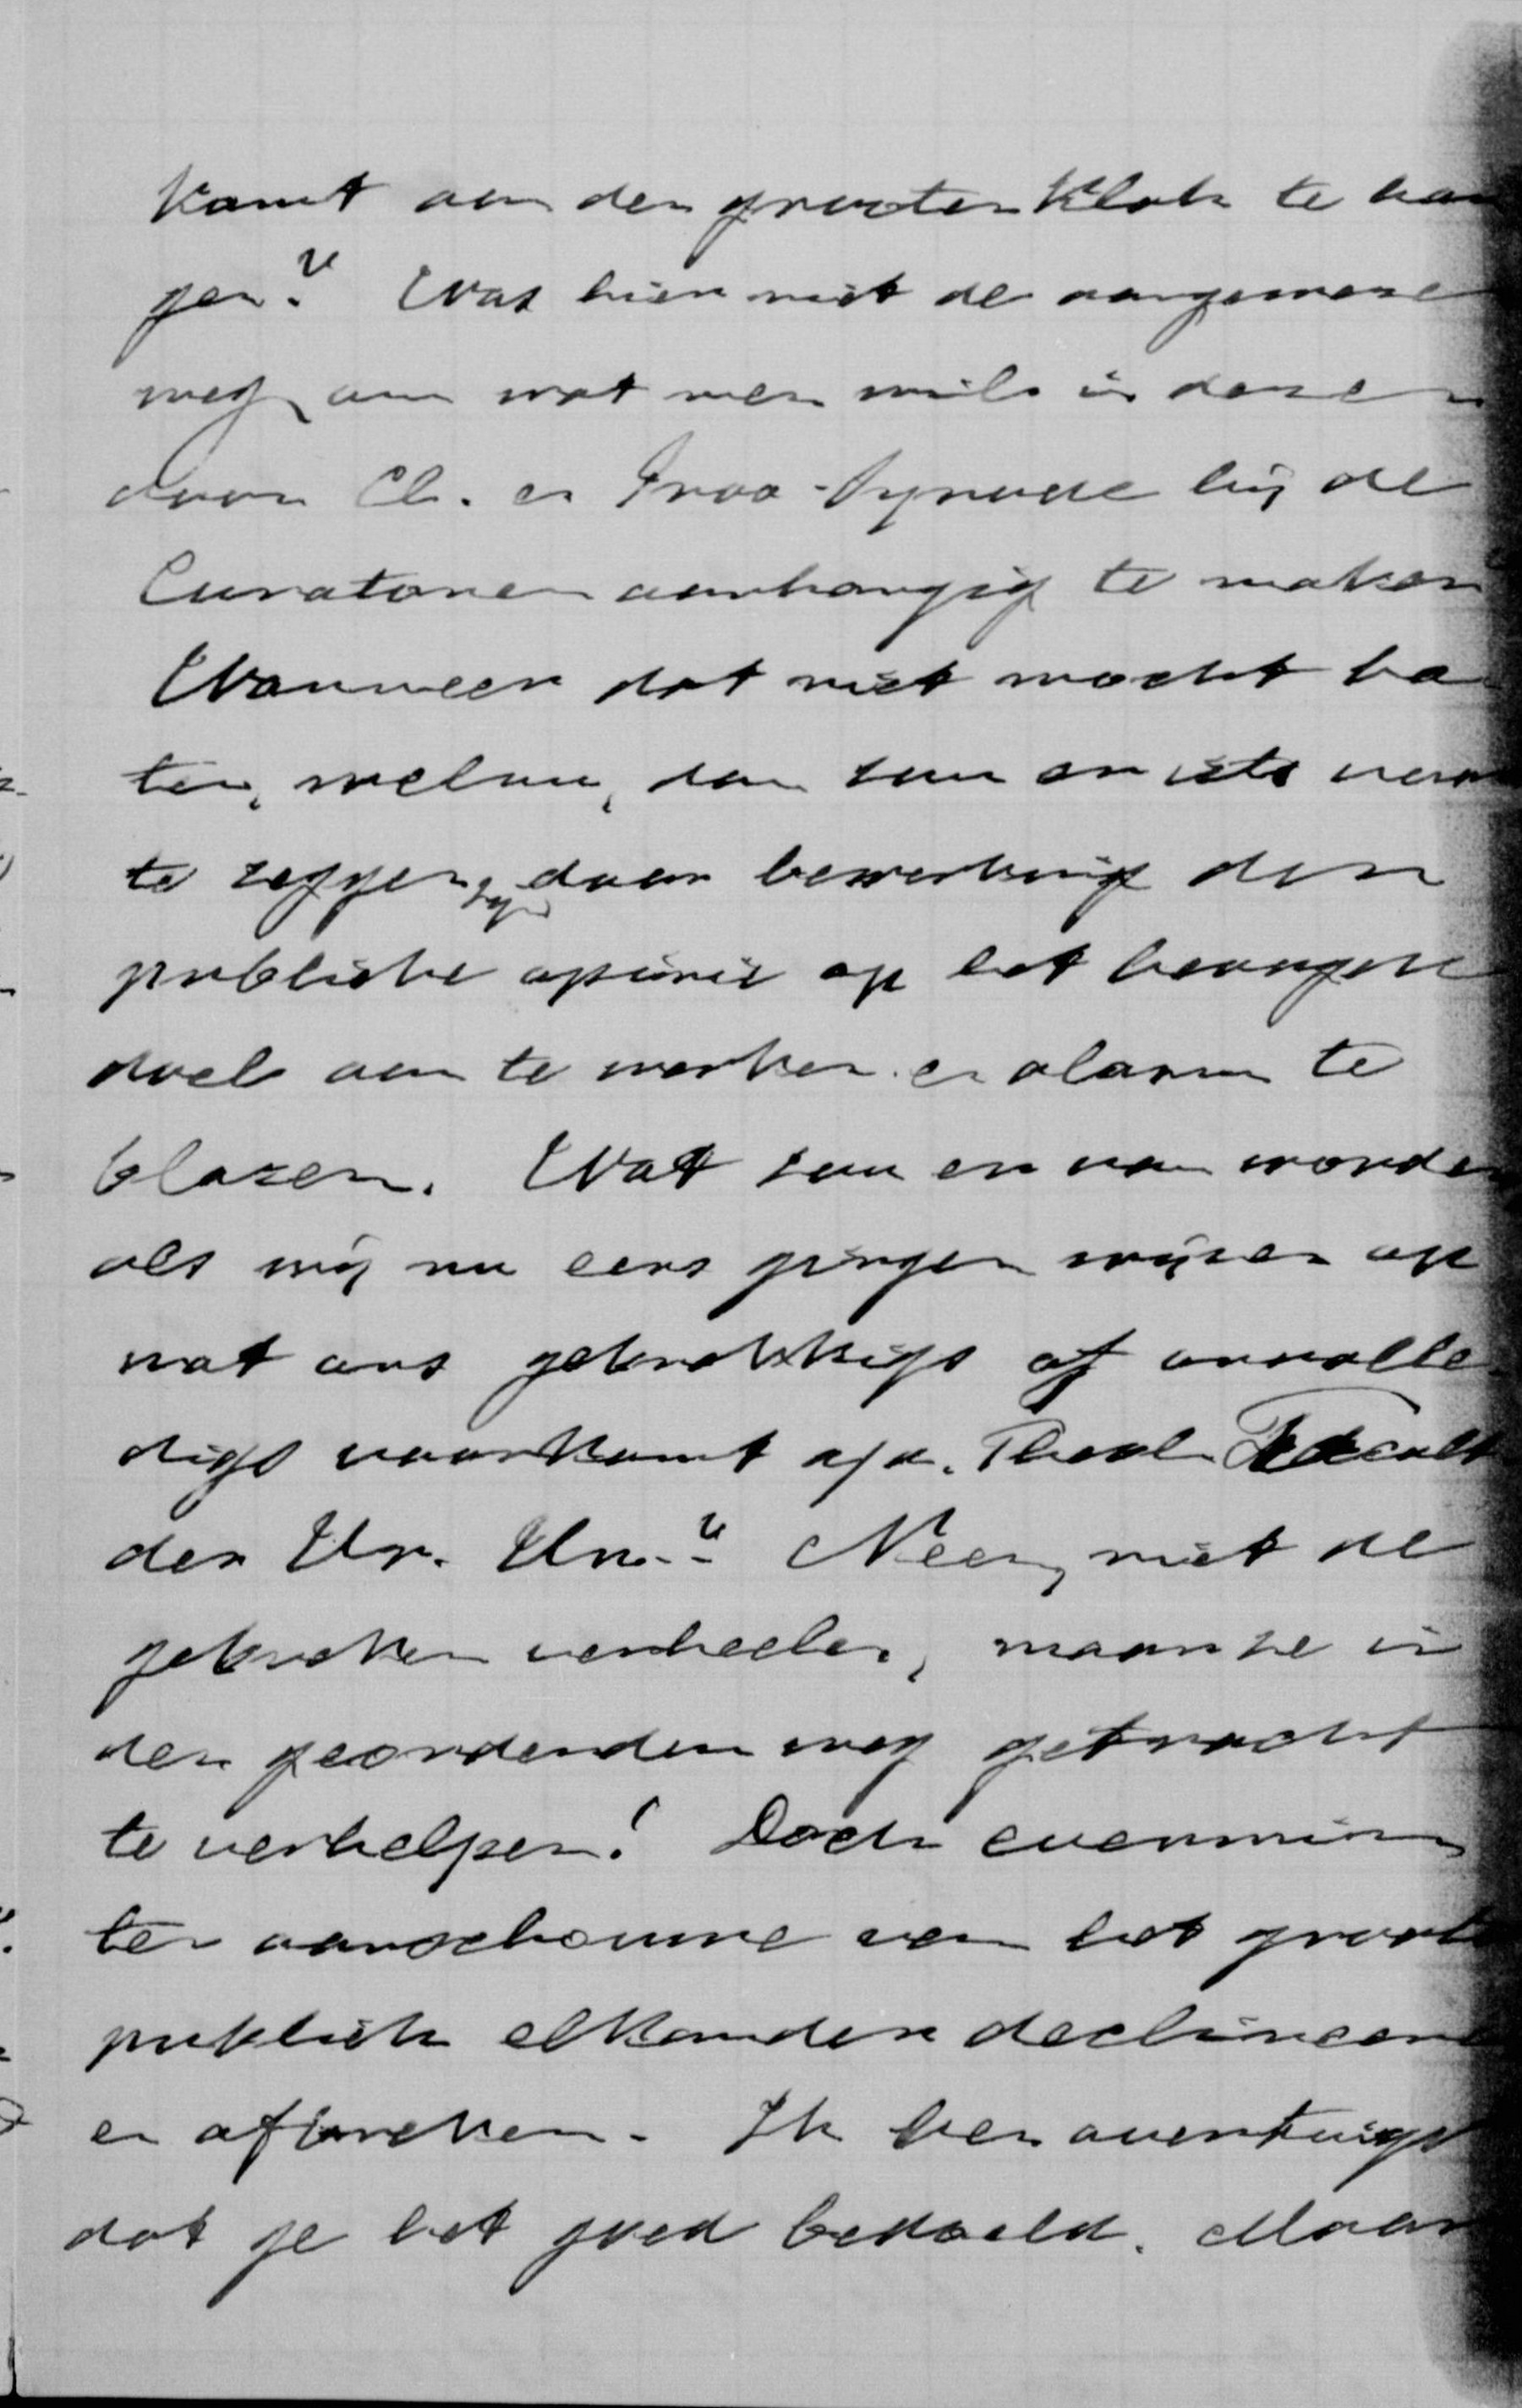 komt aan den grooten klok te han
gen? Was hier niet de aangewezene
weg om wat men wil in dezen
door Cl. en Prov-Synode bij de
Curatoren aanhangig te maken
Wanneer dat niet mocht ba
ten, welnu, dan zou er iets voor
te zeggen zijn door bewerking der
publieke opinie op het beoogde
doel aan te werken en alarm te
blazen. Wat zou er van worden
als wij nu eens gingen wijzen op
wat ons gebrekkigs of onvolle
digs voorkomt a/d. Theol. Facult
der Vr. Un.? Neen, niet de
gebreken verheelen, maar ze in
den geordenden weg getracht
te verhelpen! Doch evenmin
ten aanschouwe van het groote
publiek elkander declineeren
en afbreken. Ik ben overtuigd
dat je het goed bedoeld. Maar